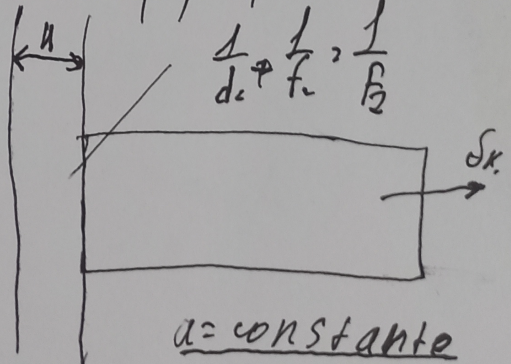 H
1/d₂ + 1/f₂ = 1/F₂
δx.
a = constante